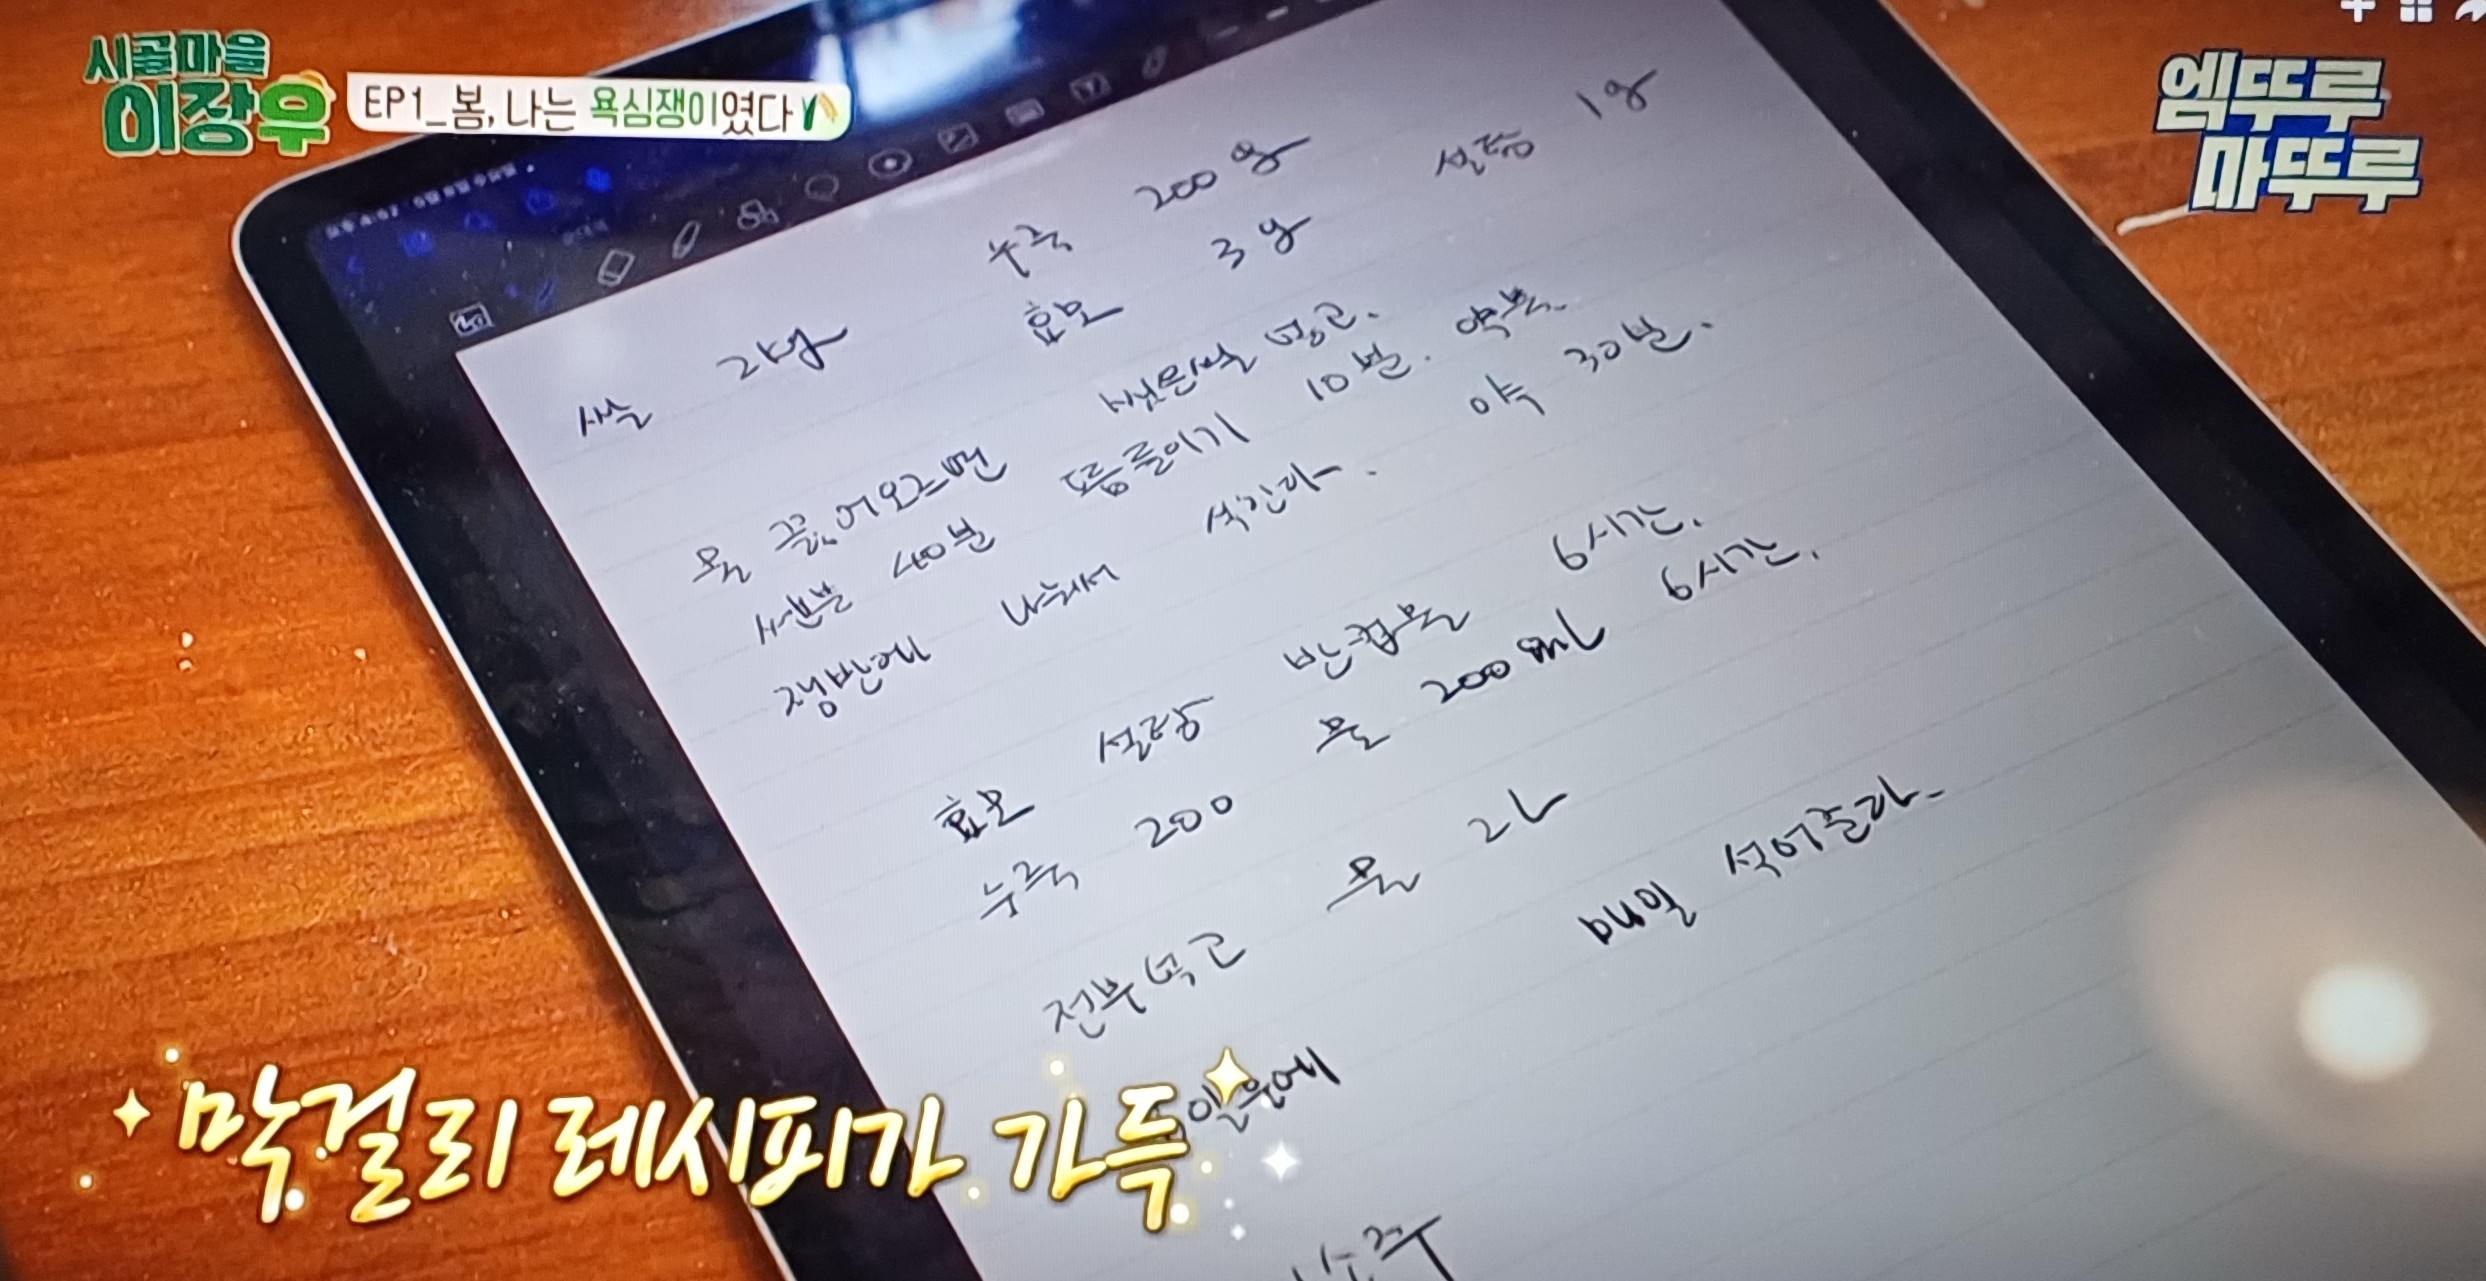 시골마을
이장우
EP1_봄, 나는 욕심쟁이였다
엠뚜루
마뚜루
쌀 2kg 누룩 200g 설탕 1g
효모 3g
물 끓어오르면 넣고.
센불 40분 뜸들이기 10분.
쟁반에 나눠서 식힌다. 약 30분.
효모 설탕 반컵물 6시간.
누룩 200 물 200ml 6시간.
전부 넣고 물 2L
매일 석어준다.
막걸리 레시피가 가득